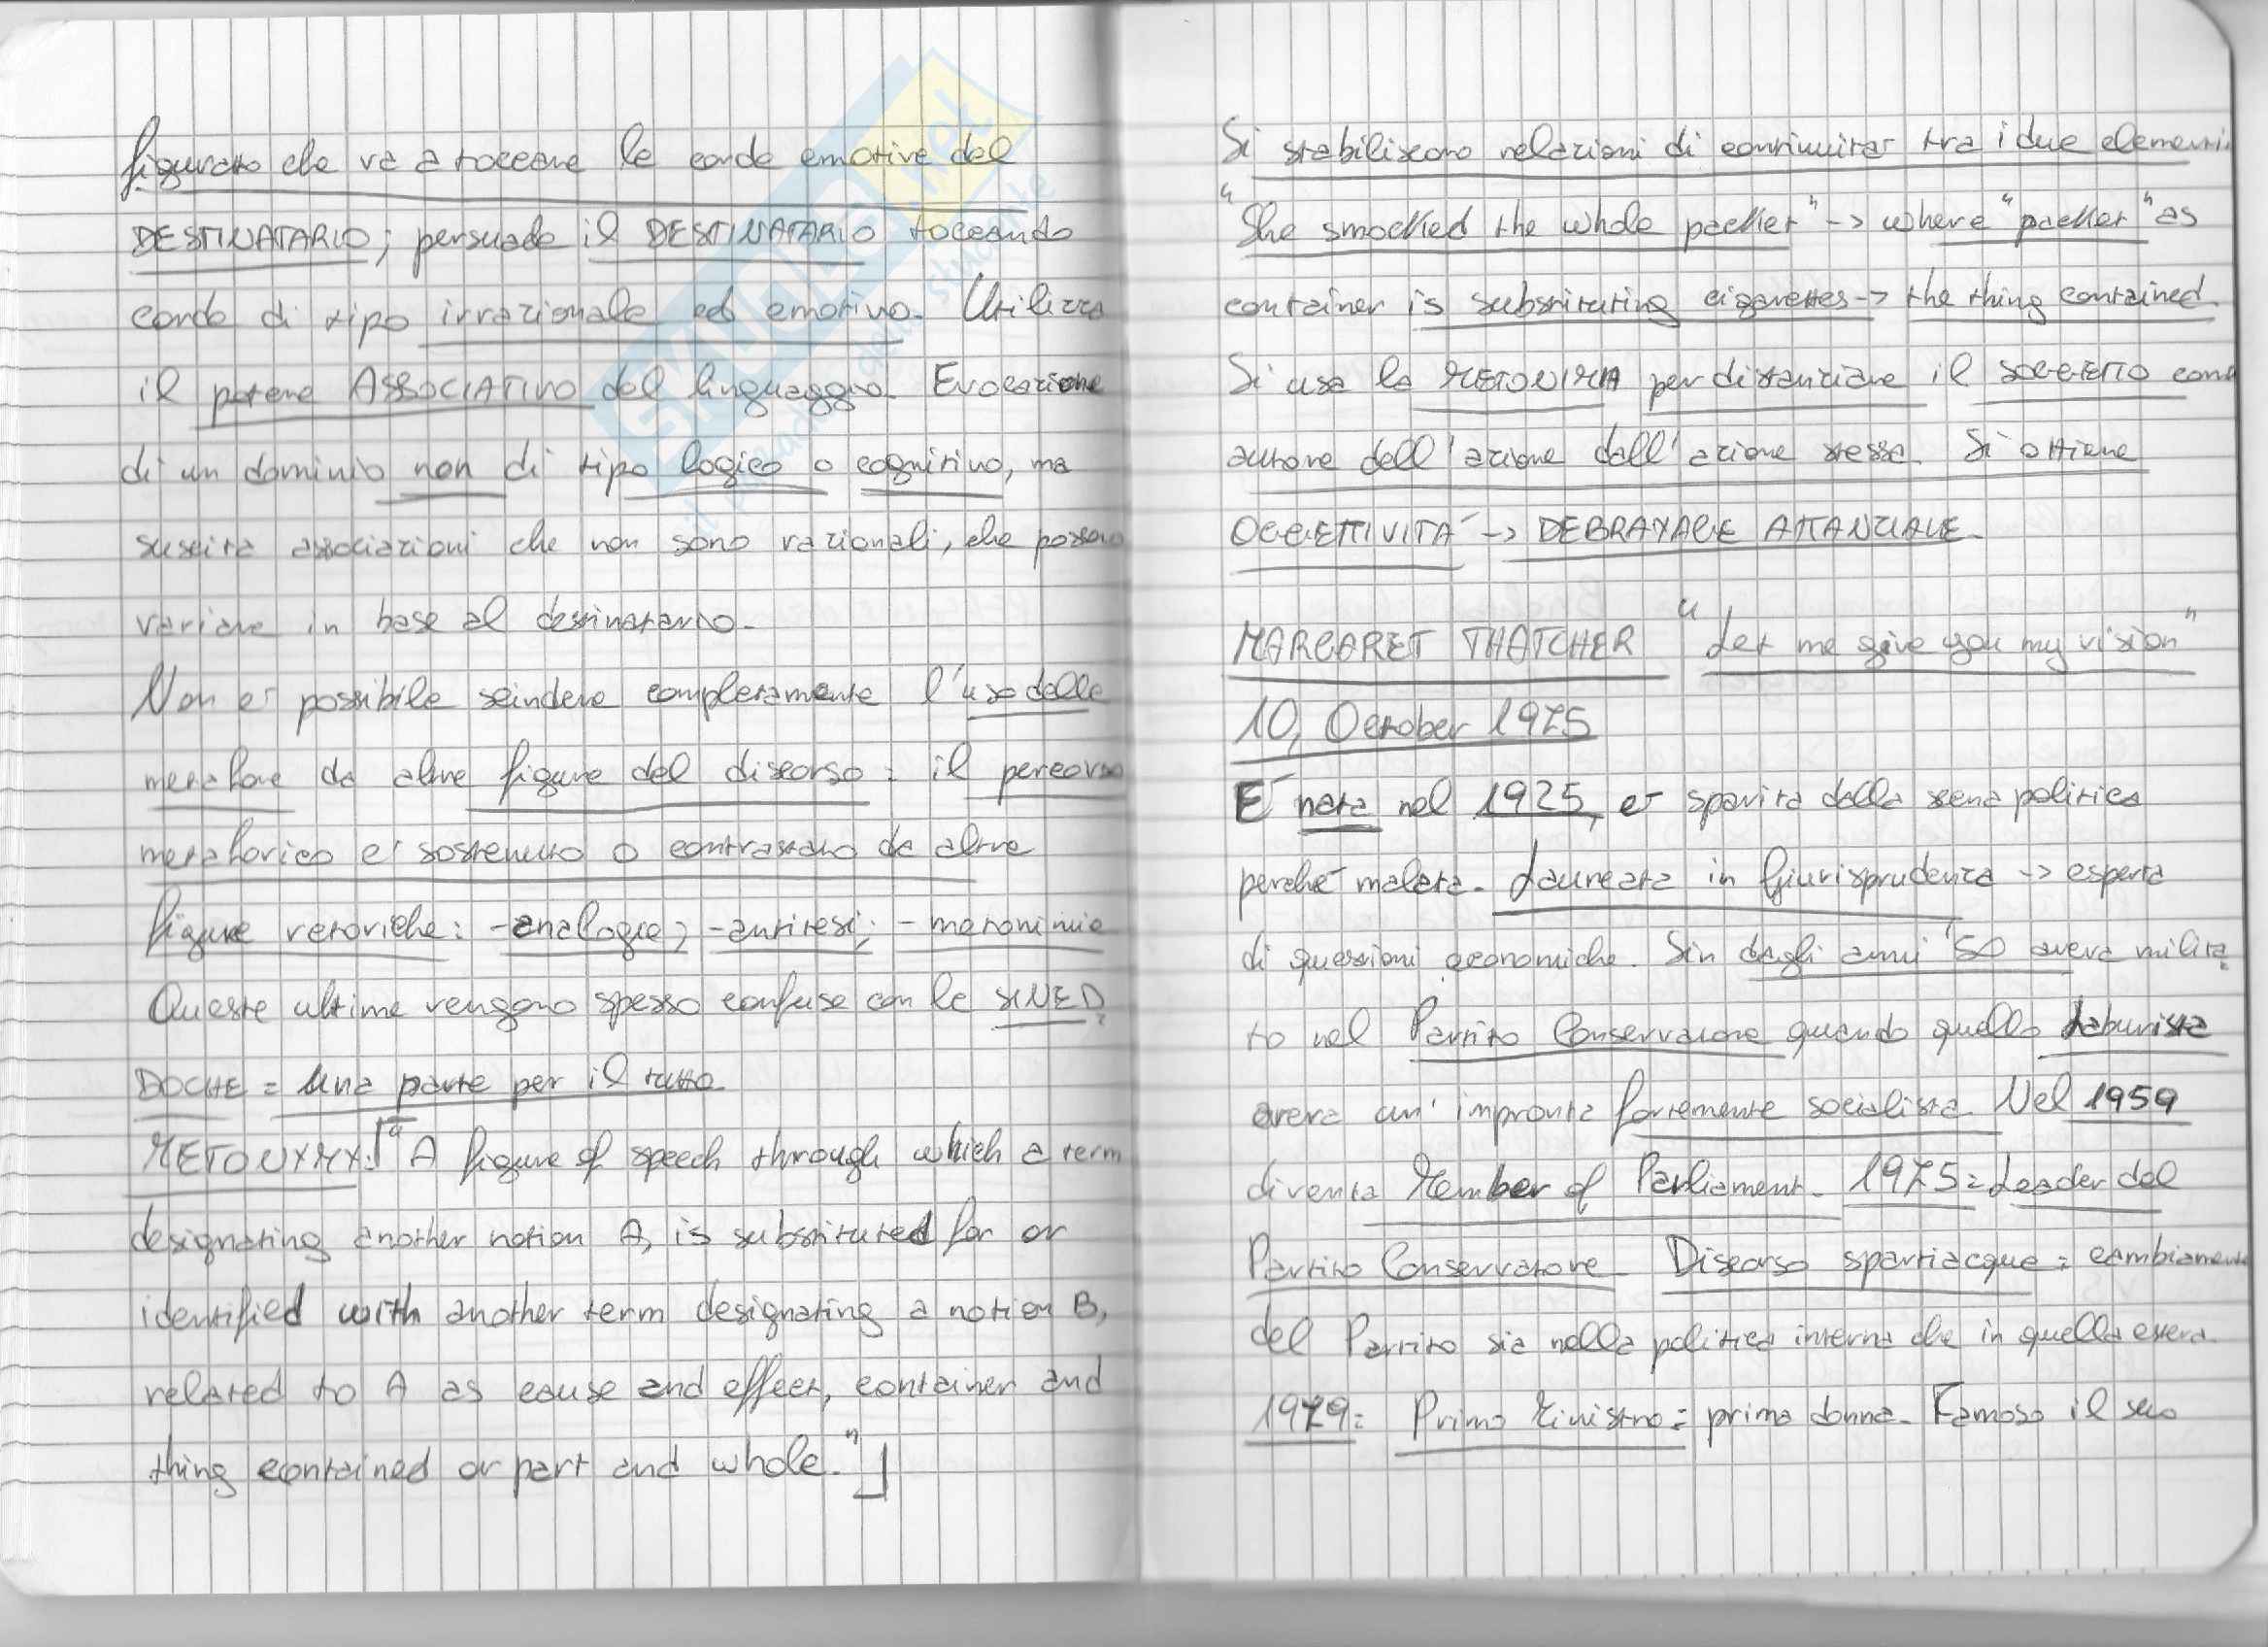 figurato che va a toccare le corde emotive del
DESTINATARIO; persuade il DESTINATARIO toccando
corde di tipo irrazionale ed emotivo. Utilizza
il potere ASSOCIATIVO del linguaggio. Evocazione
di un dominio non di tipo logico o cognitivo, ma
suscita associazioni che non sono razionali, che possono
variare in base al destinatario.
Non e' possibile scindere completamente l'uso delle
metafore da altre figure del discorso: il percorso
metaforico e' sostenuto o contrastato da altre
figure retoriche: -analogie; -antitesi; -metonimie
Queste ultime vengono spesso confuse con le SINED
DOCHE = una parte per il tutto
METONYMY: "A figure of speech through which a term
designating another notion A, is substituted for or
identified with another term designating a notion B,
related to A as cause and effect, container and
thing contained or part and whole."
Si stabiliscono relazioni di continuita' tra i due elementi.
"She smocked the whole packet" -> where "packet" as
container is substituting cigarettes -> the thing contained
Si usa la METONIMIA per distanziare il SOGGETTO come
autore dell'azione dall'azione stessa. Si ottiene
OGGETTIVITA' -> DEBRAYAGE ATTANZIALE.
MARGARET THATCHER "Let me give you my vision"
10, October 1975
E' nata nel 1925, e' sparita dalla scena politica
perche' malata. Laureata in Giurisprudenza -> esperta
di questioni economiche. Sin dagli anni '50 aveva milita
to nel Partito Conservatore quando quello Laburista
aveva un' impronta fortemente socialista. Nel 1959
diventa Member of Parliament. 1975 = Leader del
Partito Conservatore. Discorso spartiacque = cambiamento
del Partito sia nella politica interna che in quella estera.
1979 = Primo Ministro = prima donna. Famoso il suo
SKUOLA.net
il paradiso dello studente